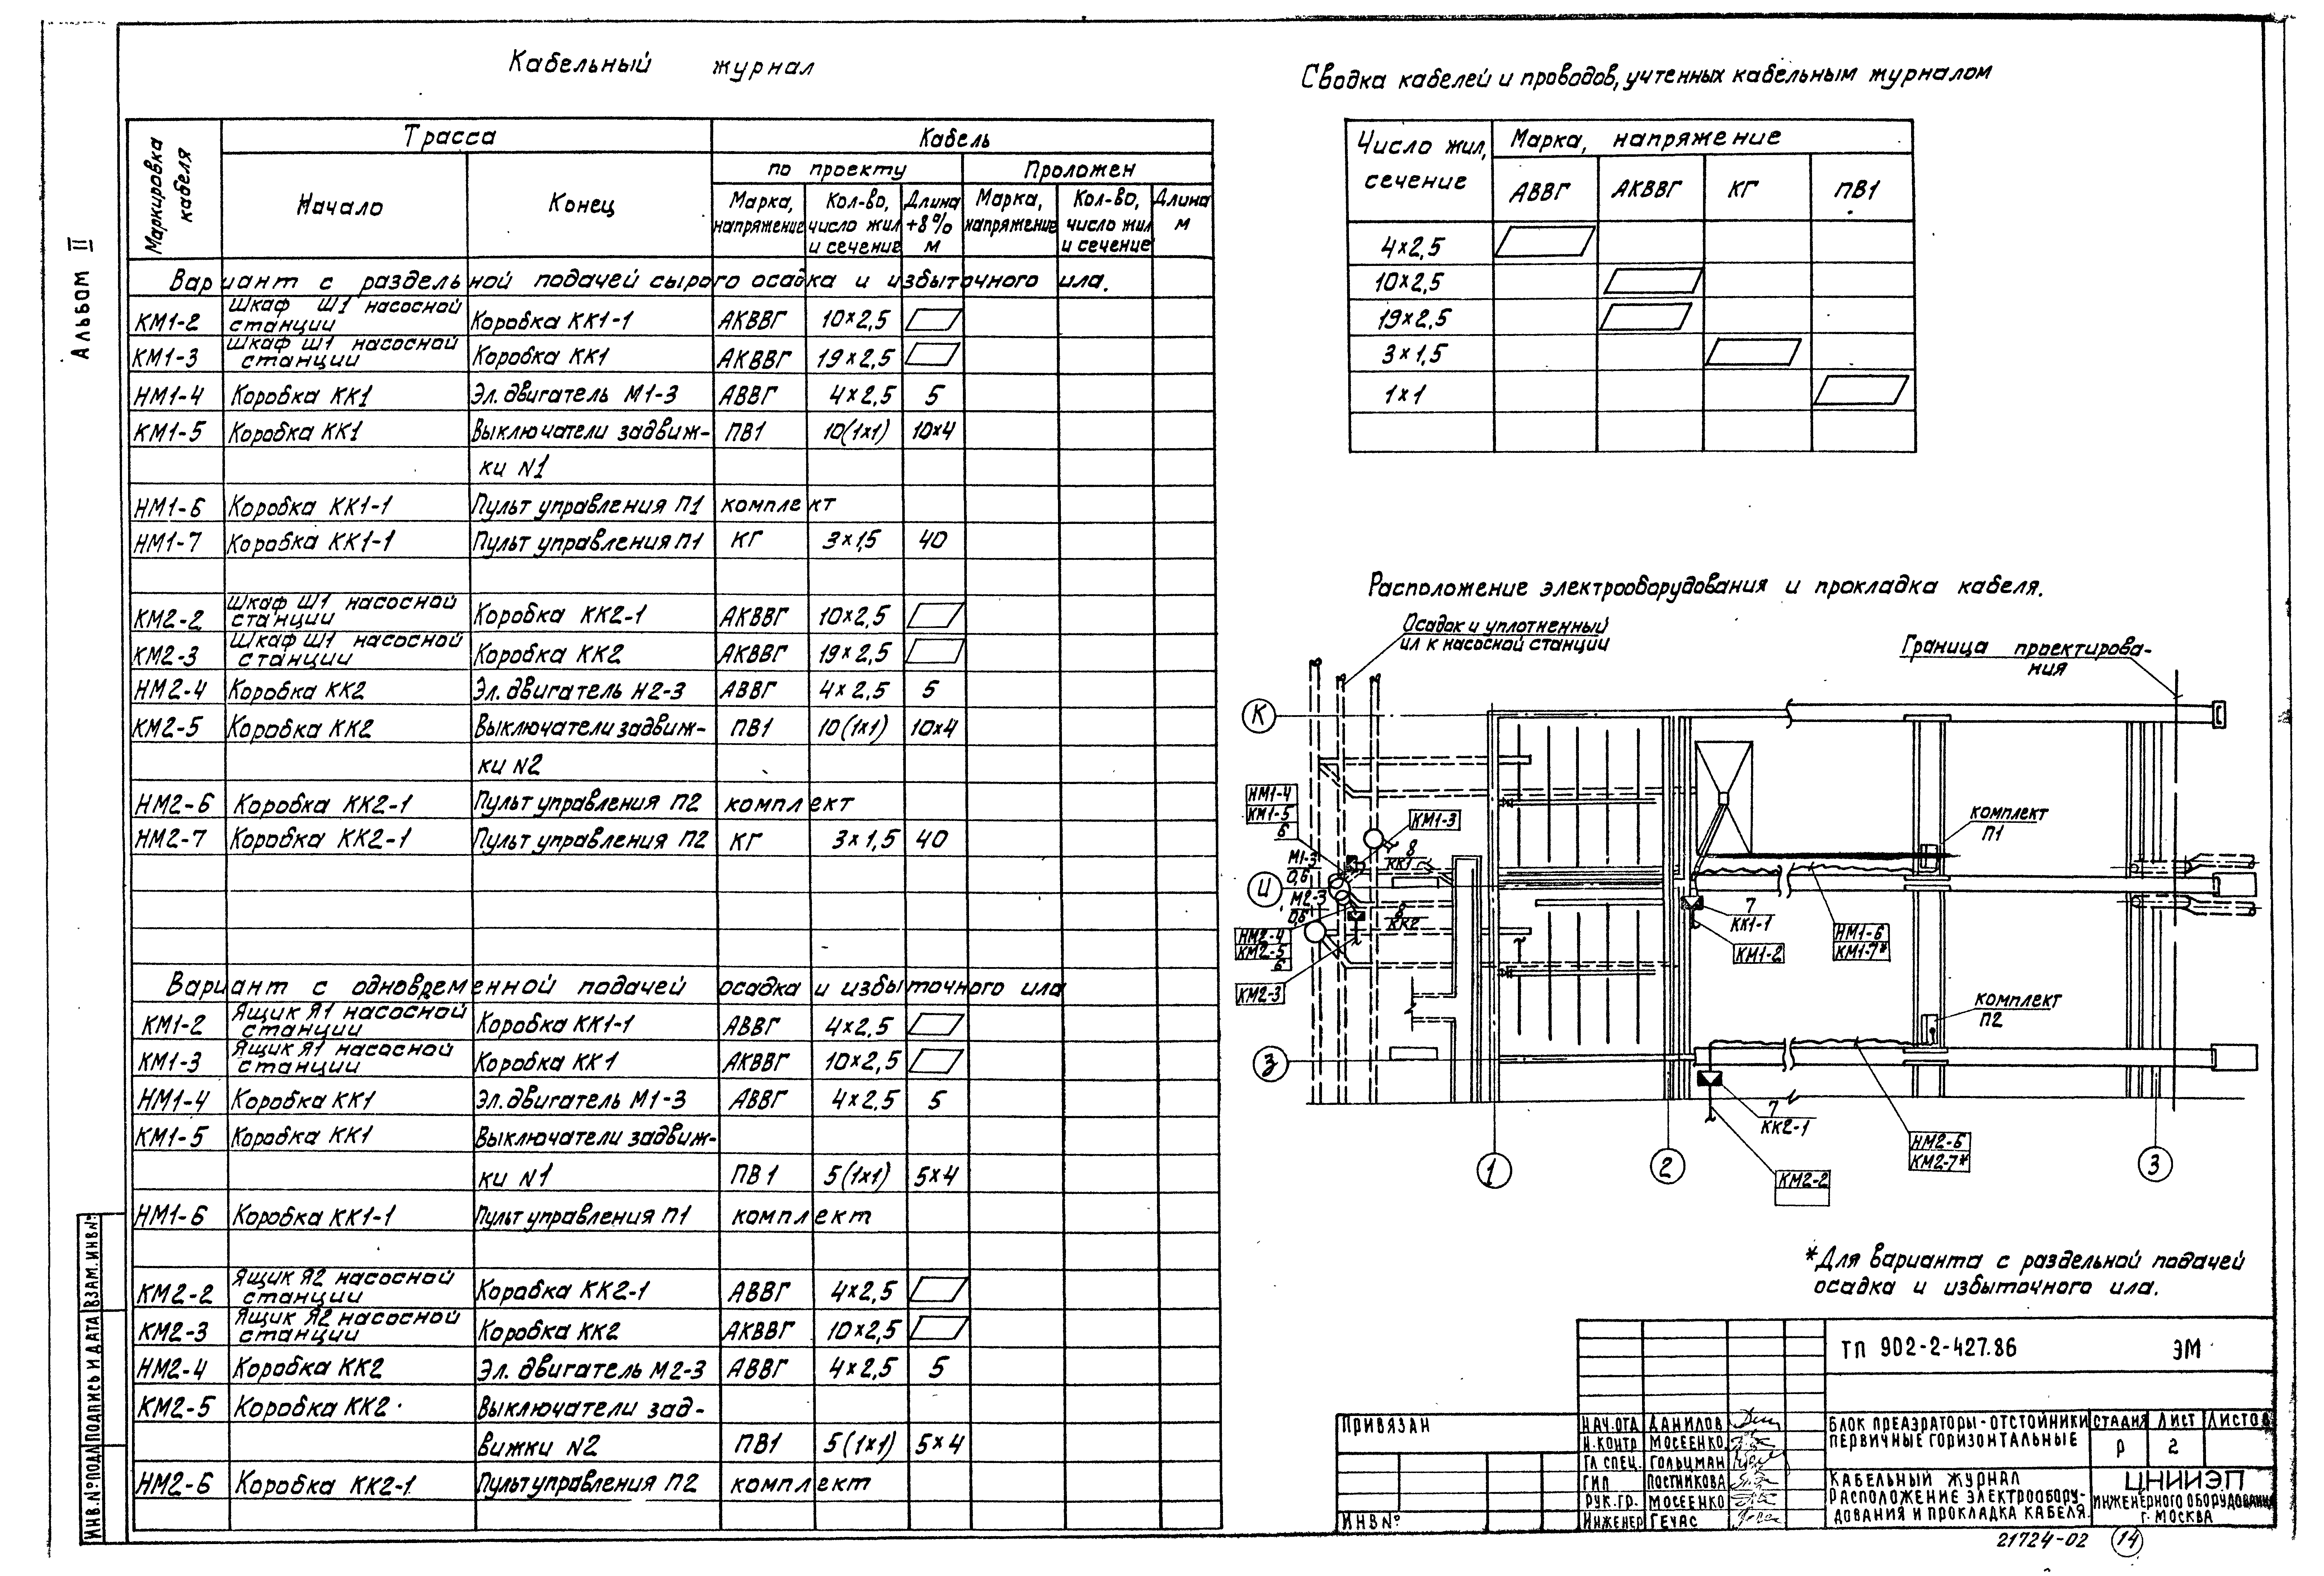 Альбом II
Кабельный журнал
Маркировка кабеля
Трасса
Кабель
Начало
Конец
по проекту
Проложен
Марка, напряжение
Кол-во, число жил и сечение
Длина +8% м
Марка, напряжение
Кол-во, число жил и сечение
Длина м
Вариант с раздельной подачей сырого осадка и избыточного ила.
КМ1-2 Шкаф Ш1 насосной станции Коробка КК1-1 АКВВГ 10×2,5
КМ1-3 Шкаф Ш1 насосной станции Коробка КК1 АКВВГ 19×2,5
НМ1-4 Коробка КК1 Эл. двигатель М1-3 АВВГ 4×2,5 5
КМ1-5 Коробка КК1 Выключатели задвиж- ПВ1 10(1×1) 10×4
ки N1
НМ1-6 Коробка КК1-1 Пульт управления П1 комплект
НМ1-7 Коробка КК1-1 Пульт управления П1 КГ 3×1,5 40
КМ2-2 Шкаф Ш1 насосной станции Коробка КК2-1 АКВВГ 10×2,5
КМ2-3 Шкаф Ш1 насосной станции Коробка КК2 АКВВГ 19×2,5
НМ2-4 Коробка КК2 Эл. двигатель Н2-3 АВВГ 4×2,5 5
КМ2-5 Коробка КК2 Выключатели задвиж- ПВ1 10(1×1) 10×4
ки N2
НМ2-6 Коробка КК2-1 Пульт управления П2 комплект
НМ2-7 Коробка КК2-1 Пульт управления П2 КГ 3×1,5 40
Вариант с одновременной подачей осадка и избыточного ила
КМ1-2 Ящик Я1 насосной станции Коробка КК1-1 АВВГ 4×2,5
КМ1-3 Ящик Я1 насосной станции Коробка КК1 АКВВГ 10×2,5
НМ1-4 Коробка КК1 Эл. двигатель М1-3 АВВГ 4×2,5 5
КМ1-5 Коробка КК1 Выключатели задвиж-
ки N1 ПВ1 5(1×1) 5×4
НМ1-6 Коробка КК1-1 Пульт управления П1 комплект
КМ2-2 Ящик Я2 насосной станции Коробка КК2-1 АВВГ 4×2,5
КМ2-3 Ящик Я2 насосной станции Коробка КК2 АКВВГ 10×2,5
НМ2-4 Коробка КК2 Эл. двигатель М2-3 АВВГ 4×2,5 5
КМ2-5 Коробка КК2 Выключатели зад-
вижки N2 ПВ1 5(1×1) 5×4
НМ2-6 Коробка КК2-1 Пульт управления П2 комплект
Сводка кабелей и проводов, учтенных кабельным журналом
Число жил, сечение
Марка, напряжение
АВВГ АКВВГ КГ ПВ1
4×2,5
10×2,5
19×2,5
3×1,5
1×1
Расположение электрооборудования и прокладка кабеля.
Осадок и уплотненный
ил к насосной станции
Граница проектирова-
ния
К
НМ1-4
КМ1-5
6
КМ1-3
М1-3
0,6
8
КК1
И
М2-3
0,6
8
КК2
НМ2-4
КМ2-5
6
КМ2-3
З
комплект
П1
7
КК1-1
КМ1-2
НМ1-6
КМ1-7*
комплект
П2
7
КК2-1
НМ2-6
КМ2-7*
КМ2-2
1
2
3
*Для варианта с раздельной подачей
осадка и избыточного ила.
ТП 902-2-427.86 ЭМ
ПРИВЯЗАН
ИНВ №
НАЧ.ОТД ДАНИЛОВ
Н.КОНТР МОСЕЕНКО
ГЛ СПЕЦ. ГОЛЬЦМАН
ГИП ПОСТНИКОВА
РУК.ГР. МОСЕЕНКО
ИНЖЕНЕР ГЕЧАС
БЛОК ПРЕАЭРАТОРЫ-ОТСТОЙНИКИ
ПЕРВИЧНЫЕ ГОРИЗОНТАЛЬНЫЕ
СТАДИЯ ЛИСТ ЛИСТОВ
Р 2
КАБЕЛЬНЫЙ ЖУРНАЛ
РАСПОЛОЖЕНИЕ ЭЛЕКТРООБОРУ-
ДОВАНИЯ И ПРОКЛАДКА КАБЕЛЯ.
ЦНИИЭП
ИНЖЕНЕРНОГО ОБОРУДОВАНИЯ
Г. МОСКВА
21724-02 14
ИНВ.№ПОДЛ ПОДПИСЬ И ДАТА ВЗАМ.ИНВ№